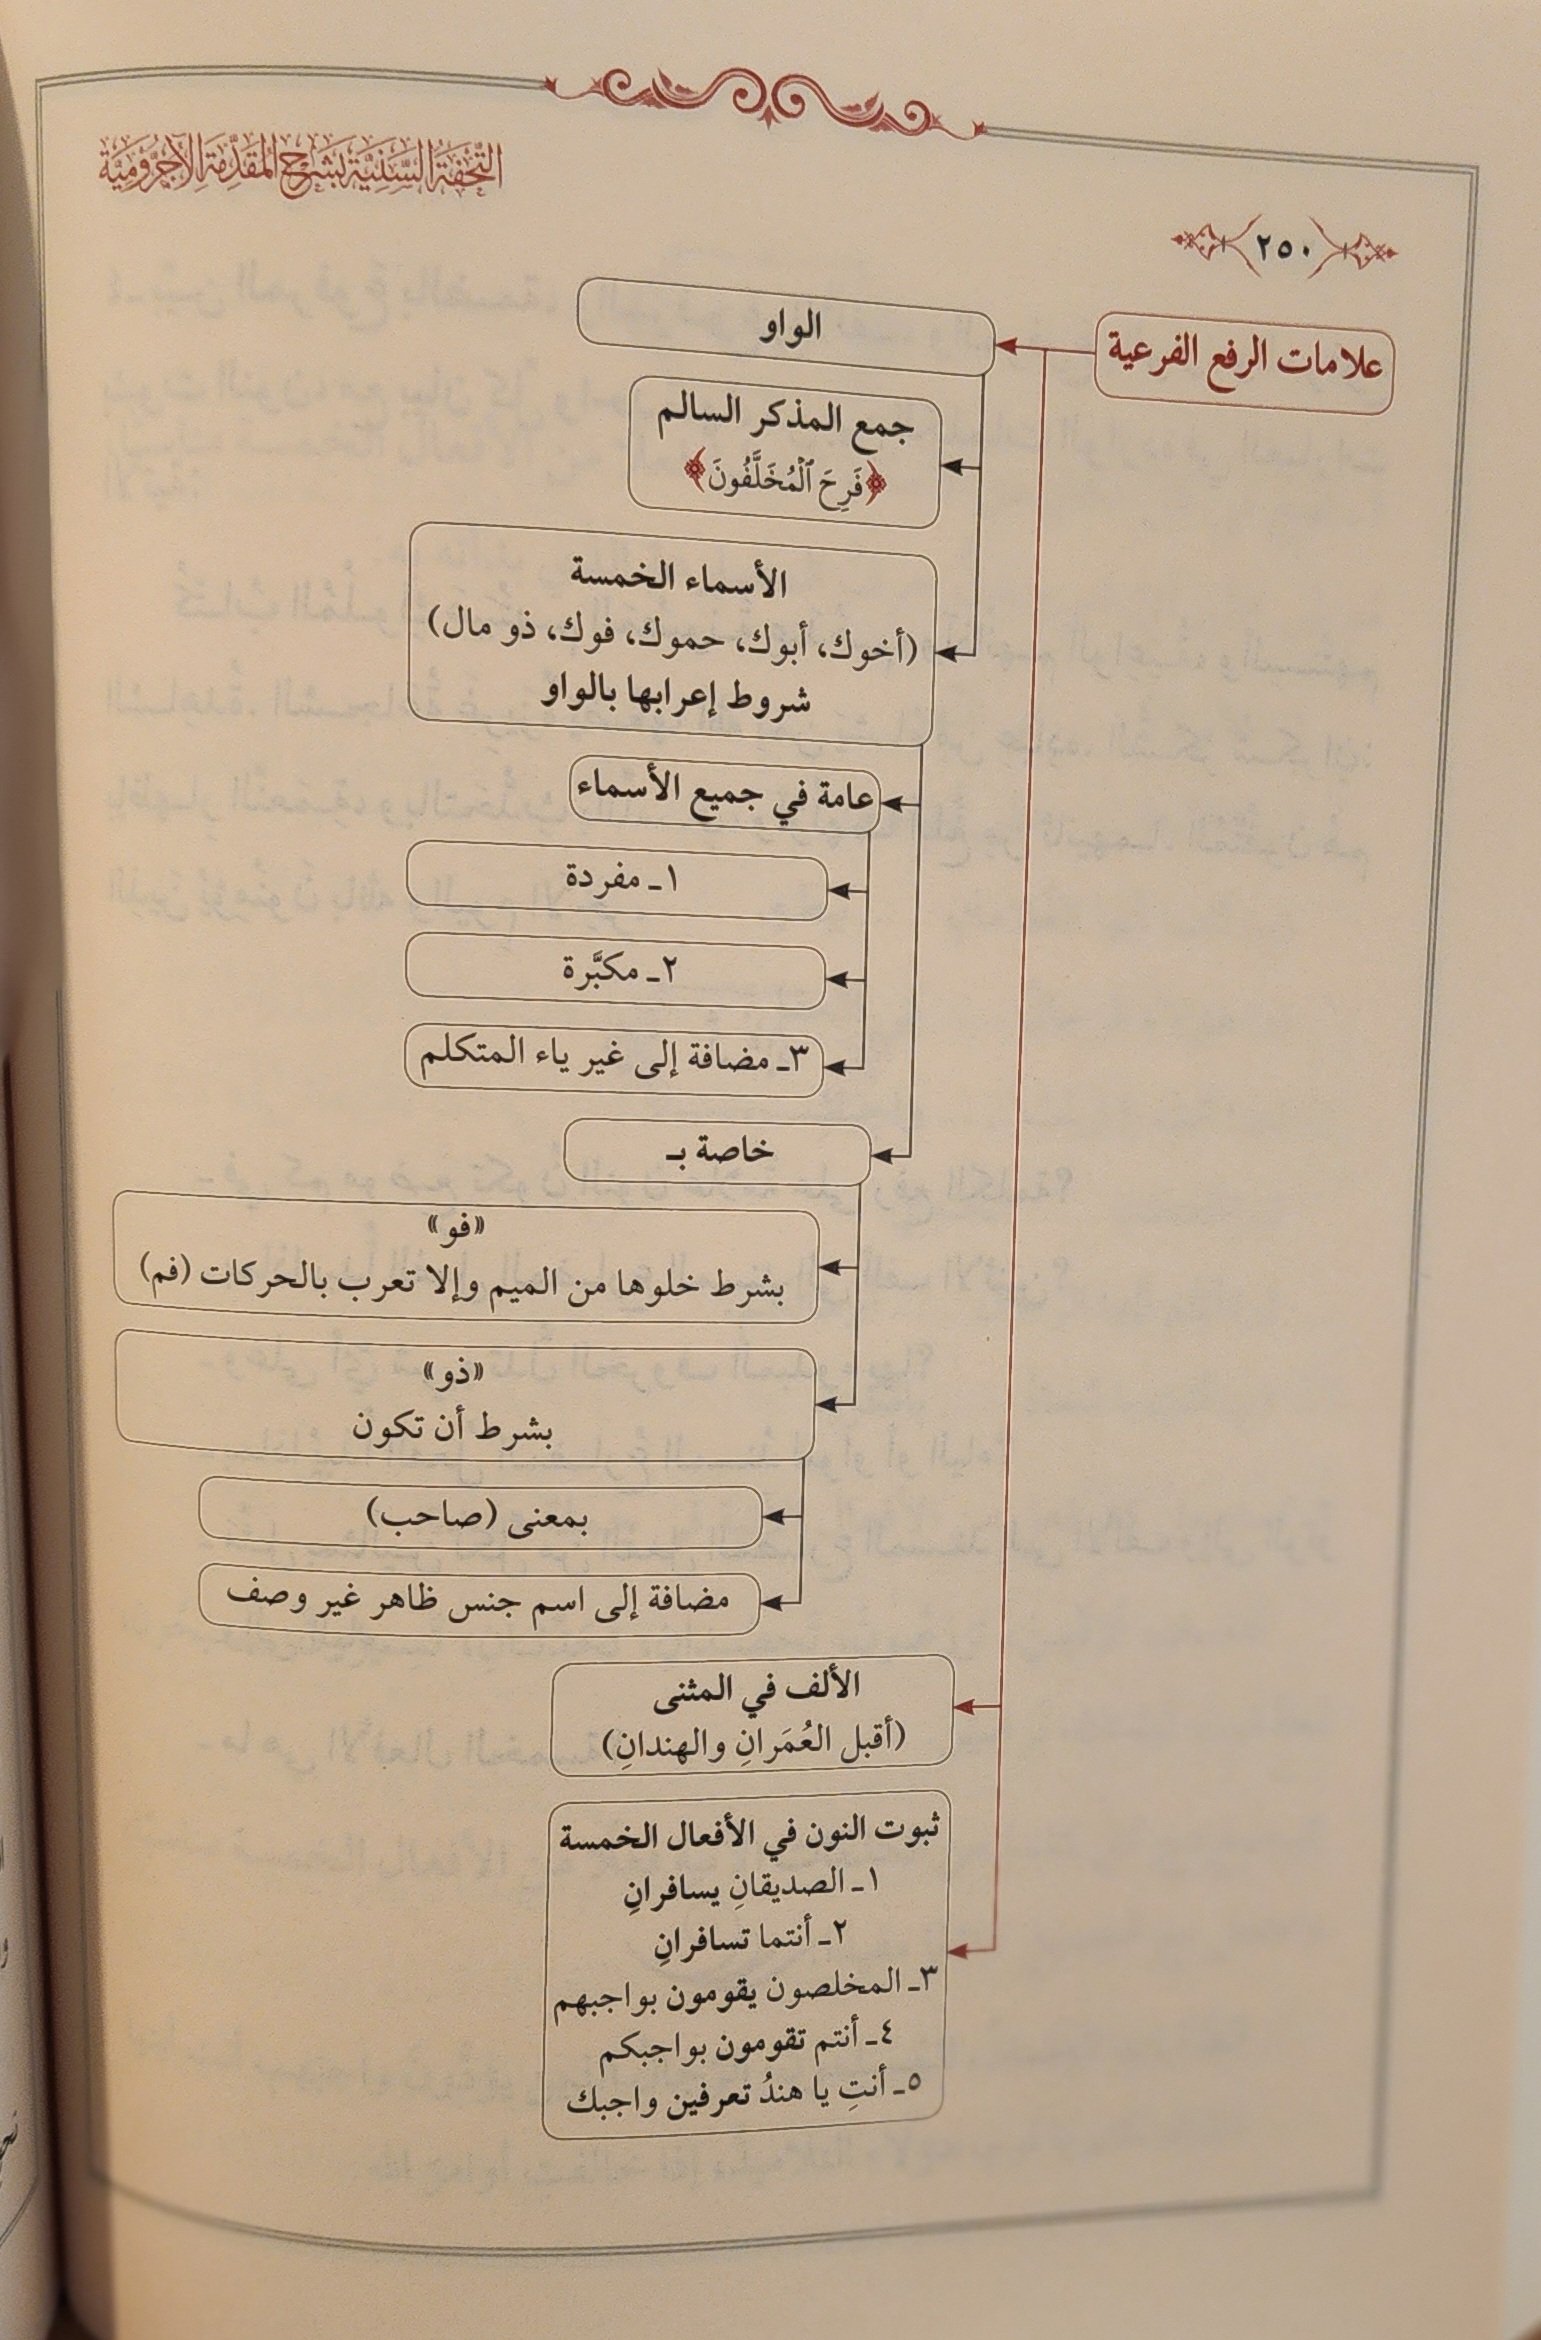 التحفة السنية بشرح المقدمة الآجرومية
٢٥٠
علامات الرفع الفرعية
الواو
جمع المذكر السالم
﴿فَرِحَ ٱلْمُخَلَّفُونَ﴾
الأسماء الخمسة
(أخوك، أبوك، حموك، فوك، ذو مال)
شروط إعرابها بالواو
عامة في جميع الأسماء
١ـ مفردة
٢ـ مكبَّرة
٣ـ مضافة إلى غير ياء المتكلم
خاصة بـ
«فو»
بشرط خلوها من الميم وإلا تعرب بالحركات (فم)
«ذو»
بشرط أن تكون
بمعنى (صاحب)
مضافة إلى اسم جنس ظاهر غير وصف
الألف في المثنى
(أقبل العُمَرانِ والهندانِ)
ثبوت النون في الأفعال الخمسة
١ـ الصديقانِ يسافرانِ
٢ـ أنتما تسافرانِ
٣ـ المخلصون يقومون بواجبهم
٤ـ أنتم تقومون بواجبكم
٥ـ أنتِ يا هندُ تعرفين واجبك